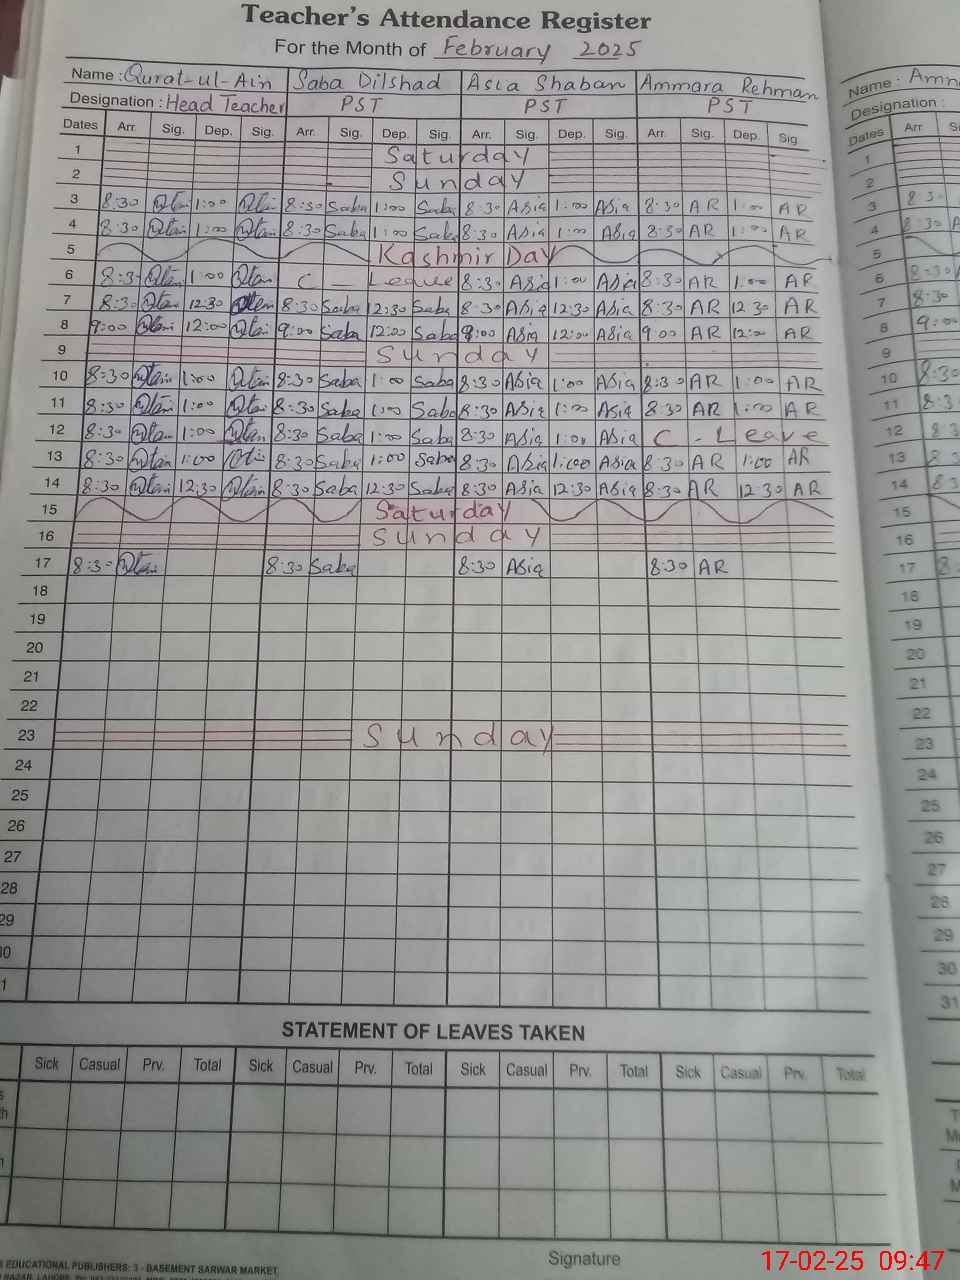 Teacher's Attendance Register
For the Month of February 2025
Name : Qurat-ul-Ain Saba Dilshad Asia Shaban Ammara Rehman
Designation : Head Teacher PST PST PST
Dates Arr. Sig. Dep. Sig. Arr. Sig. Dep. Sig. Arr. Sig. Dep. Sig. Arr. Sig. Dep. Sig
1 Saturday
2 Sunday
3 8:30 1:00 8:30 Saba 1:00 Saba 8:30 Asia 1:00 Asia 8:30 AR 1:00 AR
4 8:30 1:00 8:30 Saba 1:00 Saba 8:30 Asia 1:00 Asia 8:30 AR 1:00 AR
5 Kashmir Day
6 8:30 1:00 C - Leave 8:30 Asia 1:00 Asia 8:30 AR 1:00 AR
7 8:30 12:30 8:30 Saba 12:30 Saba 8:30 Asia 12:30 Asia 8:30 AR 12:30 AR
8 9:00 12:00 9:00 Saba 12:00 Saba 9:00 Asia 12:00 Asia 9:00 AR 12:00 AR
9 Sunday
10 8:30 1:00 8:30 Saba 1:00 Saba 8:30 Asia 1:00 Asia 8:30 AR 1:00 AR
11 8:30 1:00 8:30 Saba 1:00 Saba 8:30 Asia 1:00 Asia 8:30 AR 1:00 AR
12 8:30 1:00 8:30 Saba 1:00 Saba 8:30 Asia 1:00 Asia C - Leave
13 8:30 1:00 8:30 Saba 1:00 Saba 8:30 Asia 1:00 Asia 8:30 AR 1:00 AR
14 8:30 12:30 8:30 Saba 12:30 Saba 8:30 Asia 12:30 Asia 8:30 AR 12:30 AR
15 Saturday
16 Sunday
17 8:30 8:30 Saba 8:30 Asia 8:30 AR
18
19
20
21
22
23 Sunday
24
25
26
27
28
29
30
31
STATEMENT OF LEAVES TAKEN
Sick Casual Prv. Total Sick Casual Prv. Total Sick Casual Prv. Total Sick Casual Prv. Total
EDUCATIONAL PUBLISHERS: 3 - BASEMENT SARWAR MARKET,
Signature
Name :
Designation :
Dates Arr
1
2
3 8:30
4 8:30
5
6 8:30
7 8:30
8 9:00
9
10 8:30
11 8:30
12 8:30
13 8:30
14 8:30
15
16
17
18
19
20
21
22
23
24
25
26
27
28
29
30
31
17-02-25 09:47